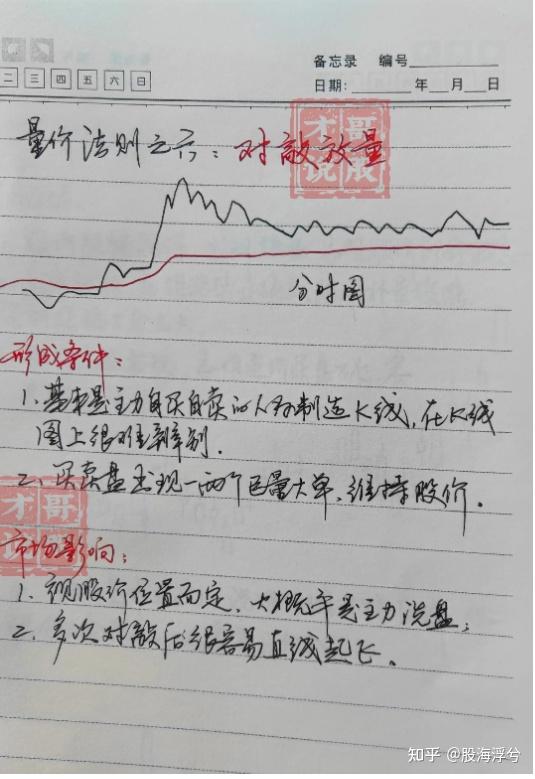 备忘录 编号
二 三 四 五 六 日
日期: 年 月 日
量价法则之六：对敲放量
才哥
说股
分时图
形成条件：
1、基本是主力自买自卖的人为制造K线，在K线
图上很难辨别．
2、买卖盘出现一两个巨量大单，维持股价．
才哥
说股
市场影响：
1、视股价位置而定，大概率是主力洗盘；
2、多次对敲后很容易直线起飞．
知乎 @股海浮兮